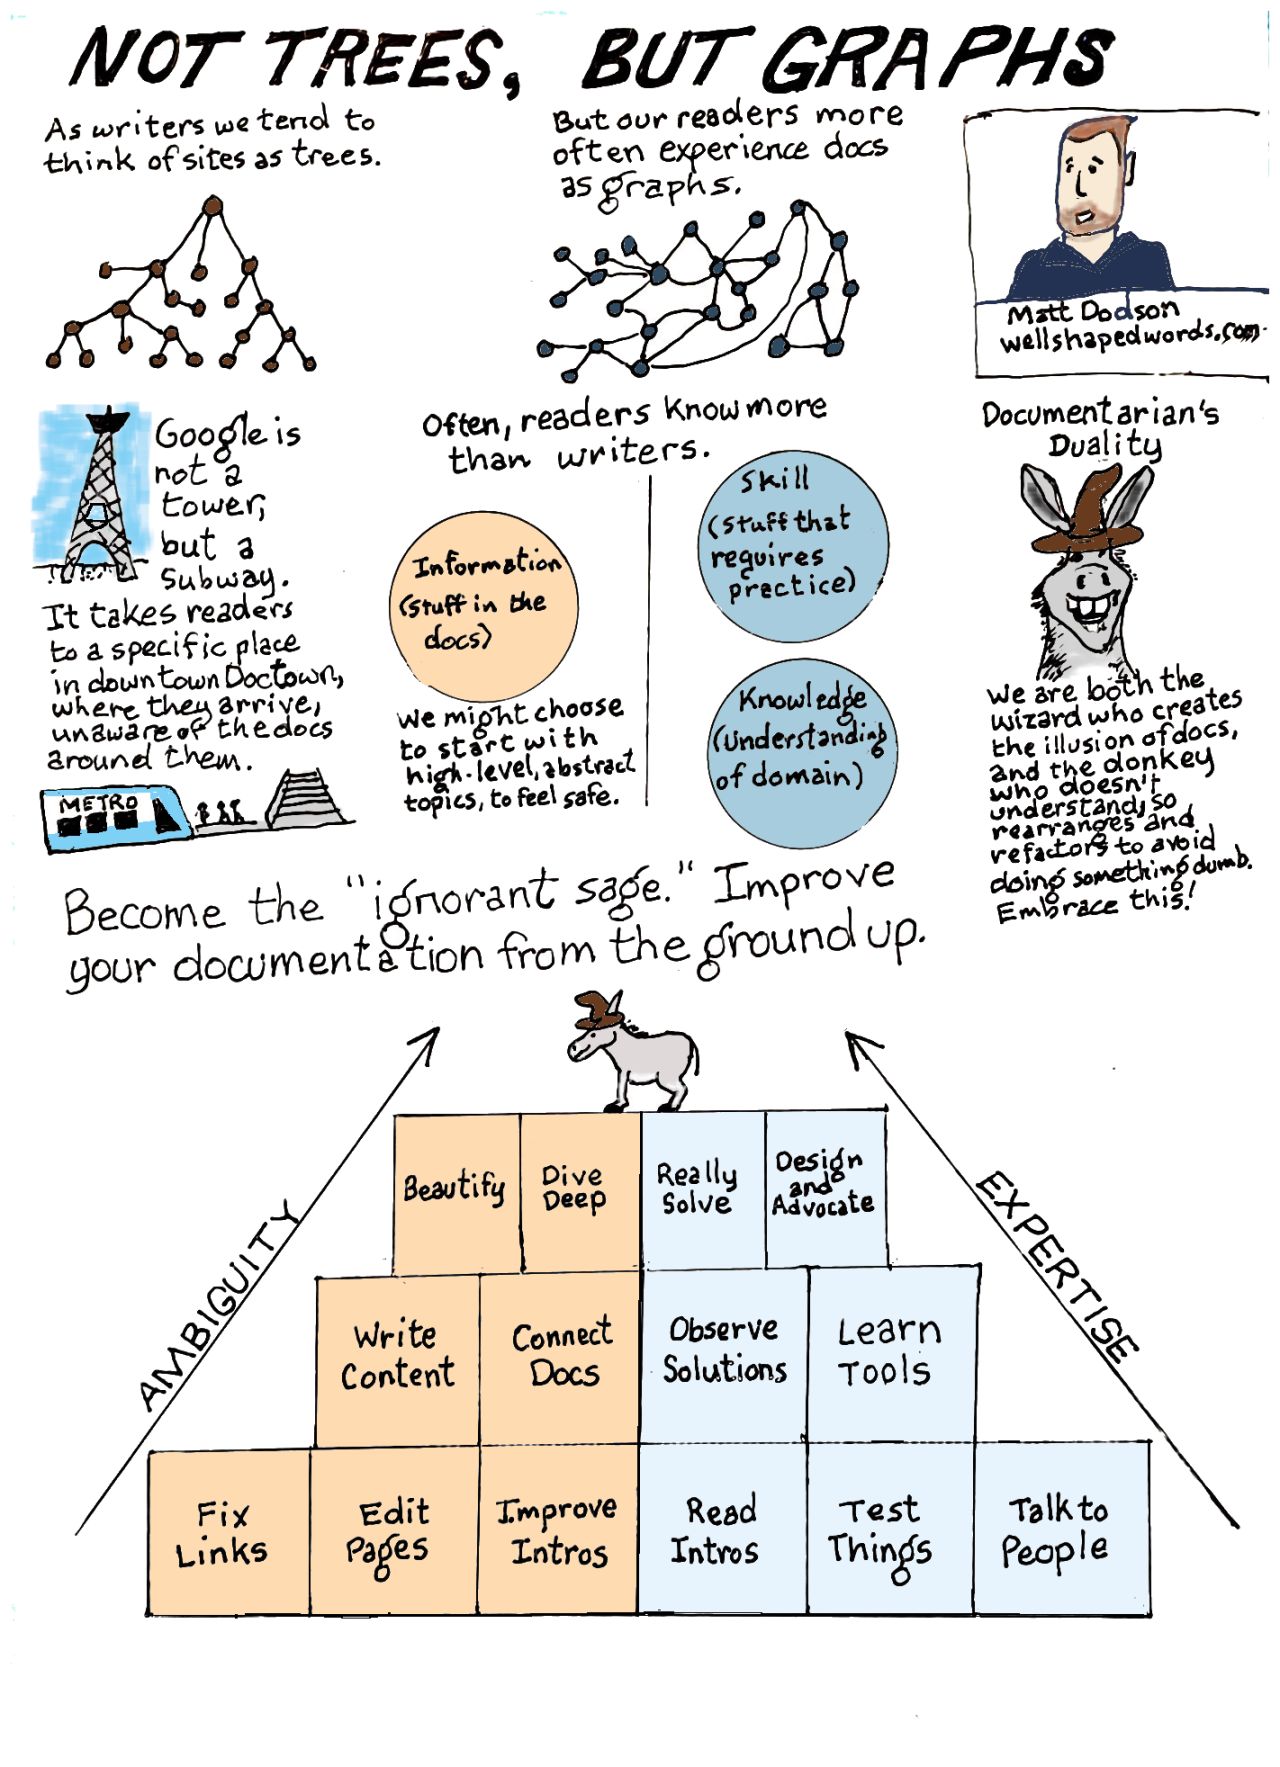 NOT TREES, BUT GRAPHS
As writers we tend to
think of sites as trees.
But our readers more
often experience docs
as graphs.
Matt Dodson
wellshapedwords.com
Google is
not a
tower,
but a
subway.
It takes readers
to a specific place
in downtown Doctown,
where they arrive,
unaware of the docs
around them.
METRO
Often, readers know more
than writers.
Information
(stuff in the
docs)
We might choose
to start with
high-level, abstract
topics, to feel safe.
Skill
(stuff that
requires
practice)
Knowledge
(understanding
of domain)
Documentarian's
Duality
We are both the
wizard who creates
the illusion of docs,
and the donkey
who doesn't
understand, so
rearranges and
refactors to avoid
doing something dumb.
Embrace this!
Become the "ignorant sage." Improve
your documentation from the ground up.
AMBIGUITY
EXPERTISE
Beautify
Dive
Deep
Really
Solve
Design
and
Advocate
Write
Content
Connect
Docs
Observe
Solutions
Learn
Tools
Fix
Links
Edit
Pages
Improve
Intros
Read
Intros
Test
Things
Talk to
People